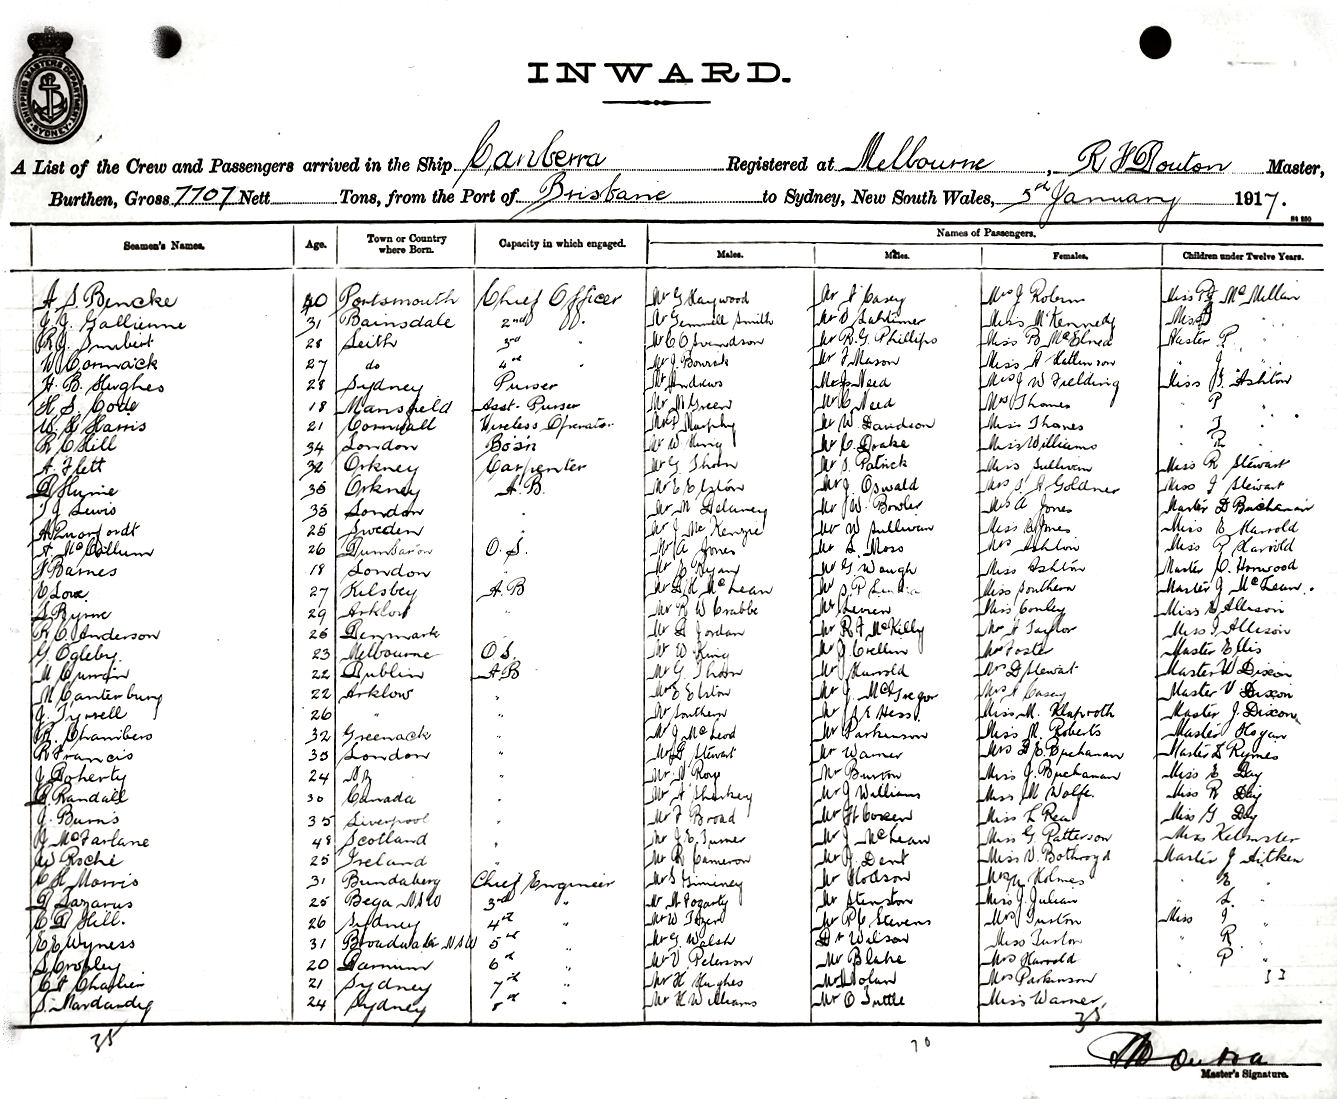 SHIPPING MASTERS DEPARTMENT
SYDNEY
INWARD.
A List of the Crew and Passengers arrived in the Ship Canberra Registered at Melbourne, R F Douton Master,
Burthen, Gross 7707 Nett Tons, from the Port of Brisbane to Sydney, New South Wales, 5th January 1917.
Names of Passengers.
Seamen's Names. Age. Town or Country where Born. Capacity in which engaged. Males. Males. Females. Children under Twelve Years.
A S Bencke 40 Portsmouth Chief Officer Mr G Haywood Mr Casey Mrs J Miss McMillan
J J Gallienne 31 Bainsdale 2nd " Mr Gemmell Smith Mr Miss McKennedy Miss " "
R J Smibert 28 Leith 3rd " Mr C O Svendson Mr R. G. Phillips Miss B McElnea Master P. " "
W Cormack 27 do 4th " Mr J Mr J Mason Miss " J " "
H. B. Hughes 28 Sydney Purser Mr Andrews Mr J Need Mrs J W Fielding Miss Ashton
H. S. Code 18 Mansfield Asst. Purser Mr Green Mr C Need Mrs Thomes " P " "
W H Harris 21 Cornwall Wireless Operator Mr P Murphy Mr W. Davidson Miss Thanes " J " "
R C Hill 34 London Bo'sn Mr W King Mr C. Drake Miss Williams " R
A Flett 32 Orkney Carpenter Mr G Thorn Mr S. Patrick Miss Sullivan Miss R Stewart
Hynie 35 Orkney A.B. Mr E Elston Mr J. Oswald Mrs S A Goldner Miss J Stewart
T J Lewis 35 London " Mr M Delaney Mr W. Bowler Mrs A Jones Master D Buchanan
25 Sweden " Mr J McKenzie Mr W Sullivan Miss Jones Miss E Harrold
A McCallum 26 Dumbarton O.S. Mr A Jones Mr S. Moss Mrs Ashton Miss Harrold
Barnes 18 London " Mr Ryan Mr G Waugh Miss Ashton Master C. Horwood
E Love 27 Kilsbey A.B Mr McLean Mr S. P Miss Southern Master J McLean.
S Byrne 29 Arklow " Mr R W Crabbe Mr Levien Miss Conley Miss Allison
H C. Anderson 26 Denmark " Mr D Jordan Mr R F McKelly Mr Taylor Miss J Allison
G Ogleby 23 Melbourne O.S. Mr W King Mr J Crellin Mrs Foster Master Ellis
M Curran 22 Dublin A.B Mr G Thorn Mr Harrold Mrs D Stewart Master W Dixon
M Canterbury 22 Arklow " Mr E Elston Mr J McGregor Mrs Casey Master V Dixon
J. Tyrrell 26 " " Mr Southern Mr Hess. Miss M. Klaproth Master J. Dixon
R. Chambers 32 Greenock " Mr J McLeod Mr Parkinson Miss M. Roberts Master Hogan
R Francis 35 London " Mr G Stewart Mr Warner Mrs E. Buchanan Master L Rymes
J Doherty 24 NZ " Mr Rose Mr Burton Miss J. Buchanan Miss E Day
G Randall 30 Canada " Mr Sharkey Mr J Williams Miss M Wolfe. Miss R Day
J. Burns 35 Liverpool " Mr J Broad Mr H Coxen Miss L Rea Miss G Day
J McFarlane 48 Scotland " Mr J. E. Turner Mr J McLean Miss G. Patterson Miss
W Roche 25 Ireland " Mr R Cameron Mr J. Dent Miss V. Bothroyd Master J Aitken
C H Morris 31 Bundaberg Chief Engineer Mr S Giminey Mr Hodson Mrs Holmes " E "
P Lazarus 25 Bega NSW 3rd " Mr M Fogarty Mr Stenston Miss J. Julian " L. "
C D Hill. 26 Sydney 4th " Mr W Tozer Mr P C Stevens Mrs Turton Miss J "
E E Wyness 31 Broadwater NSW 5th " Mr G. Welsh Dr Wilson Miss Turton " R. "
S Cropley 20 6th " Mr V. Peterson Mr Blake Mrs Harrold " P "
C F Charlier 21 Sydney 7th " Mr H Hughes Mr Dolan Mrs Parkinson 33
S. Mardandy 24 Sydney 8th " Mr H Williams Mr O Tuttle Miss Warner
35 70 35
Master's Signature.